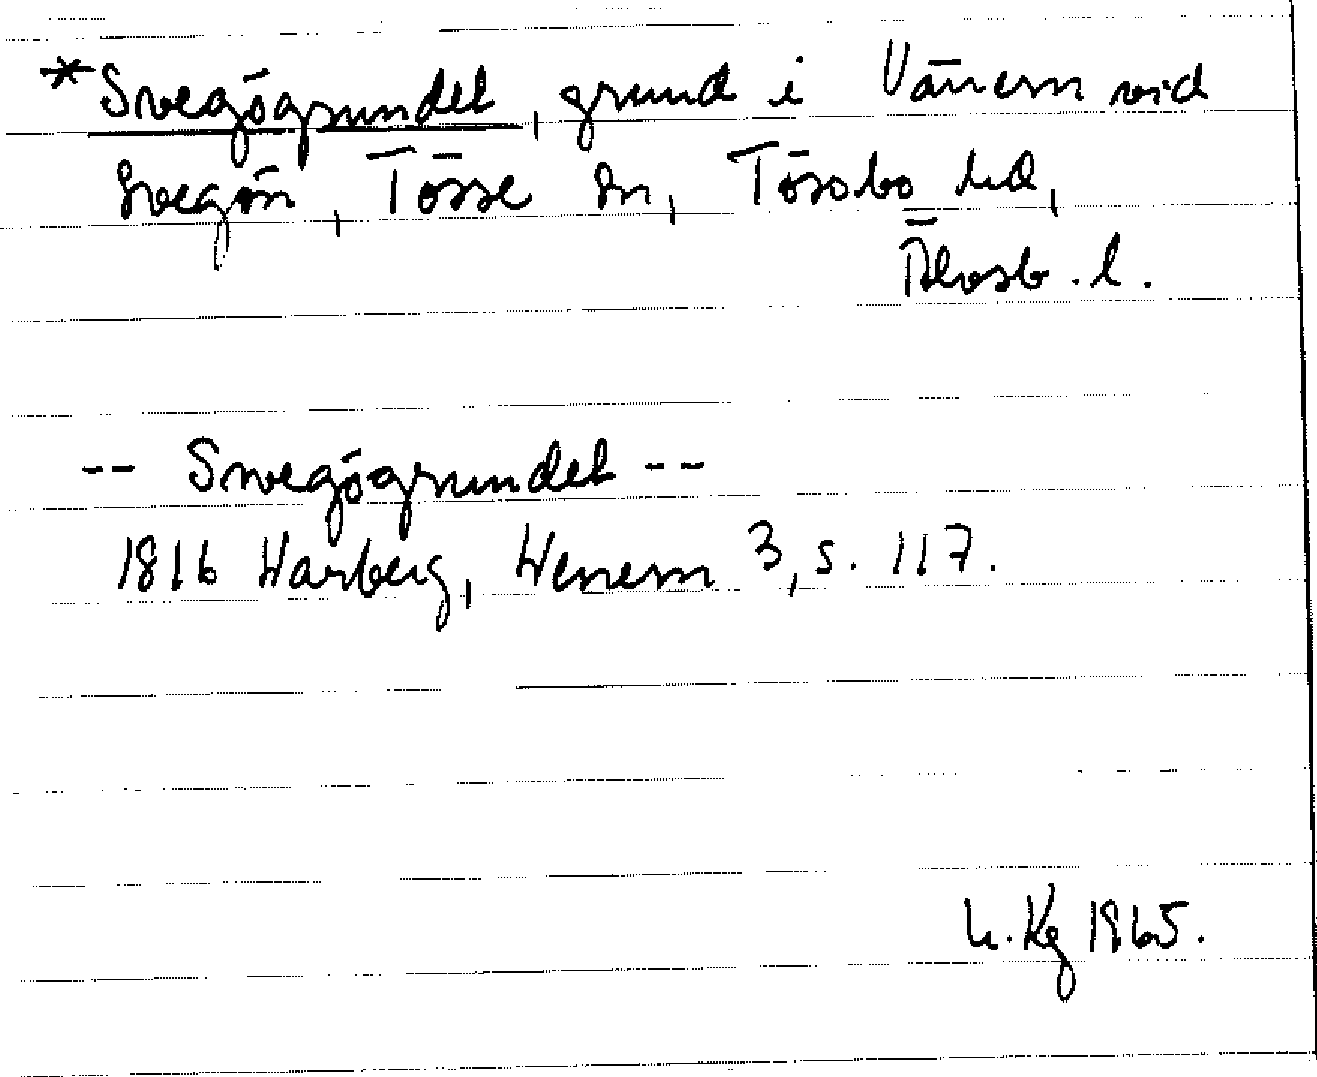 *Svegögrundet, grund i Vänern vid
Svegön, Tösse sn, Tössbo hd,
Älvsb. l.
-- Swegögrundet --
1816 Warberg, Wenern 3, s. 117.
L. Kg 1965.